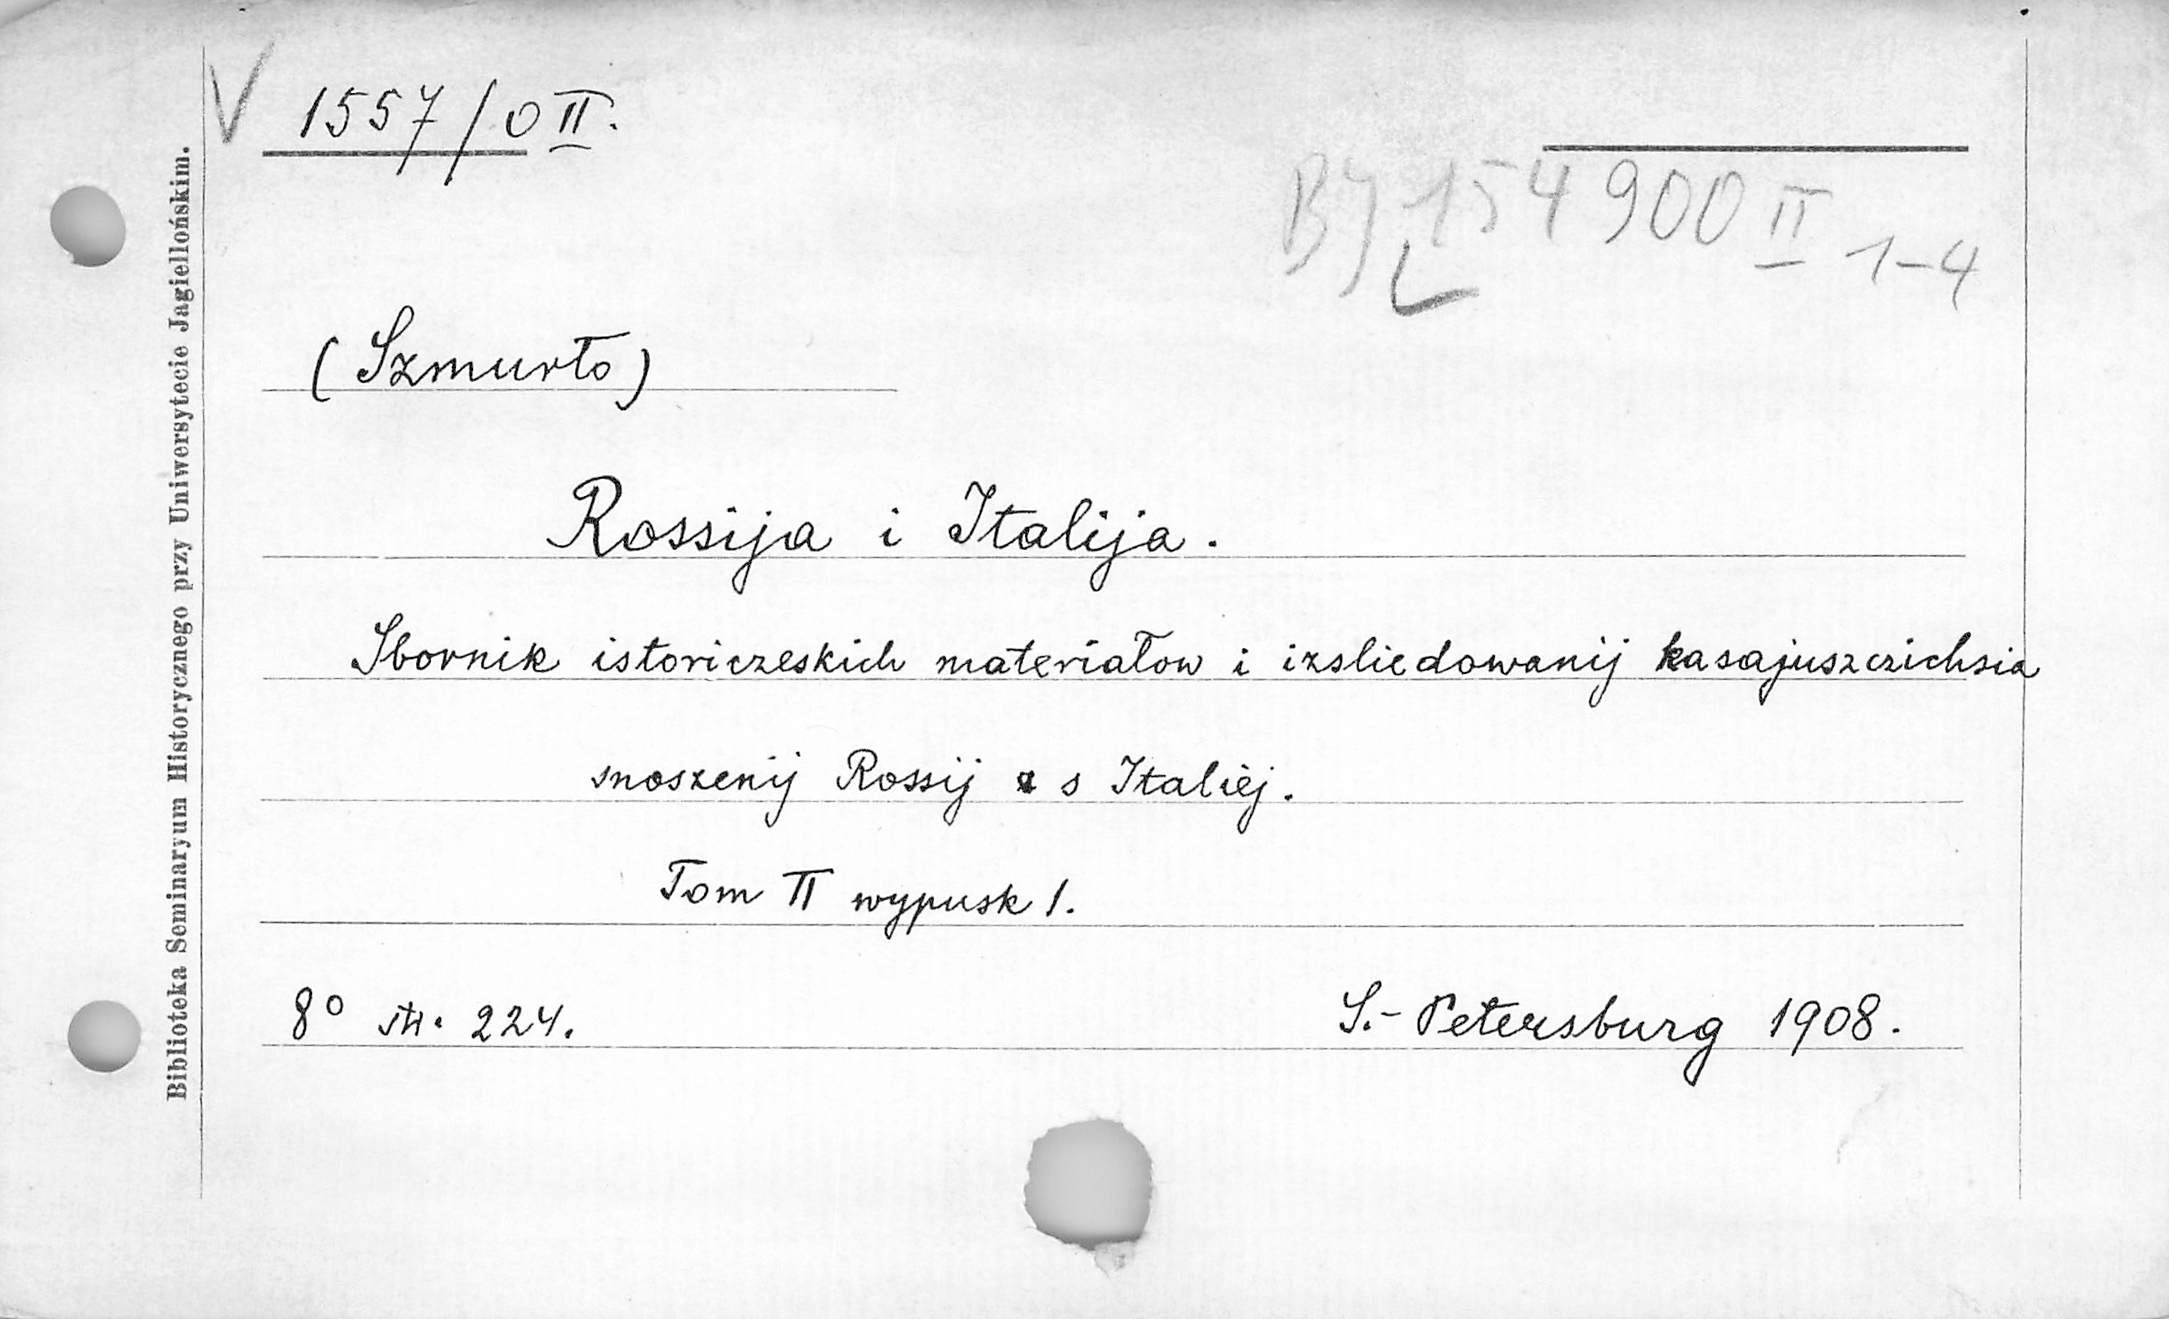 V 1557/O II.
BJ 154 900 II 1-4
(Szmurło)
Rossija i Italija.
Sbornik istoriczeskich materiałow i izsliedowanij kasajuszczichsia
snoszenij Rossij s Italiéj.
Tom II wypusk 1.
8° str. 224.
S.-Petersburg 1908.
Biblioteka Seminaryum Historycznego przy Uniwersytecie Jagiellońskim.